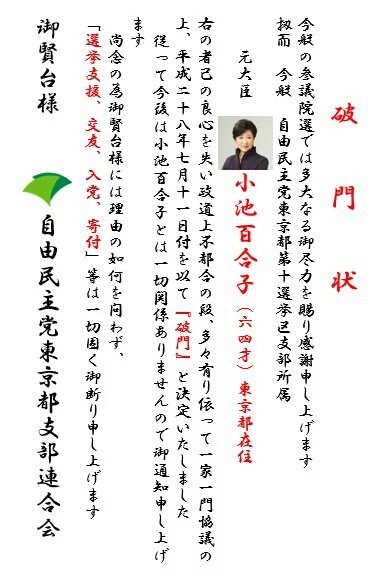 破門状
今般の参議院選では多大なる御尽力を賜り感謝申し上げます
扨而　今般　自由民主党東京都第十選挙区支部所属
元大臣
小池百合子（六四才）東京都在住
右の者己の良心を失い政道上不都合の段、多々有り依って一家一門協議の
上、平成二十八年七月十一日付を以て『破門』と決定いたしました
従って今後は小池百合子とは一切関係ありませんので御通知申し上げ
ます
尚念の為御賢台様には理由の如何を問わず、
「選挙支援、交友、入党、寄付」等は一切固く御断り申し上げます
自由民主党東京都支部連合会
御賢台様